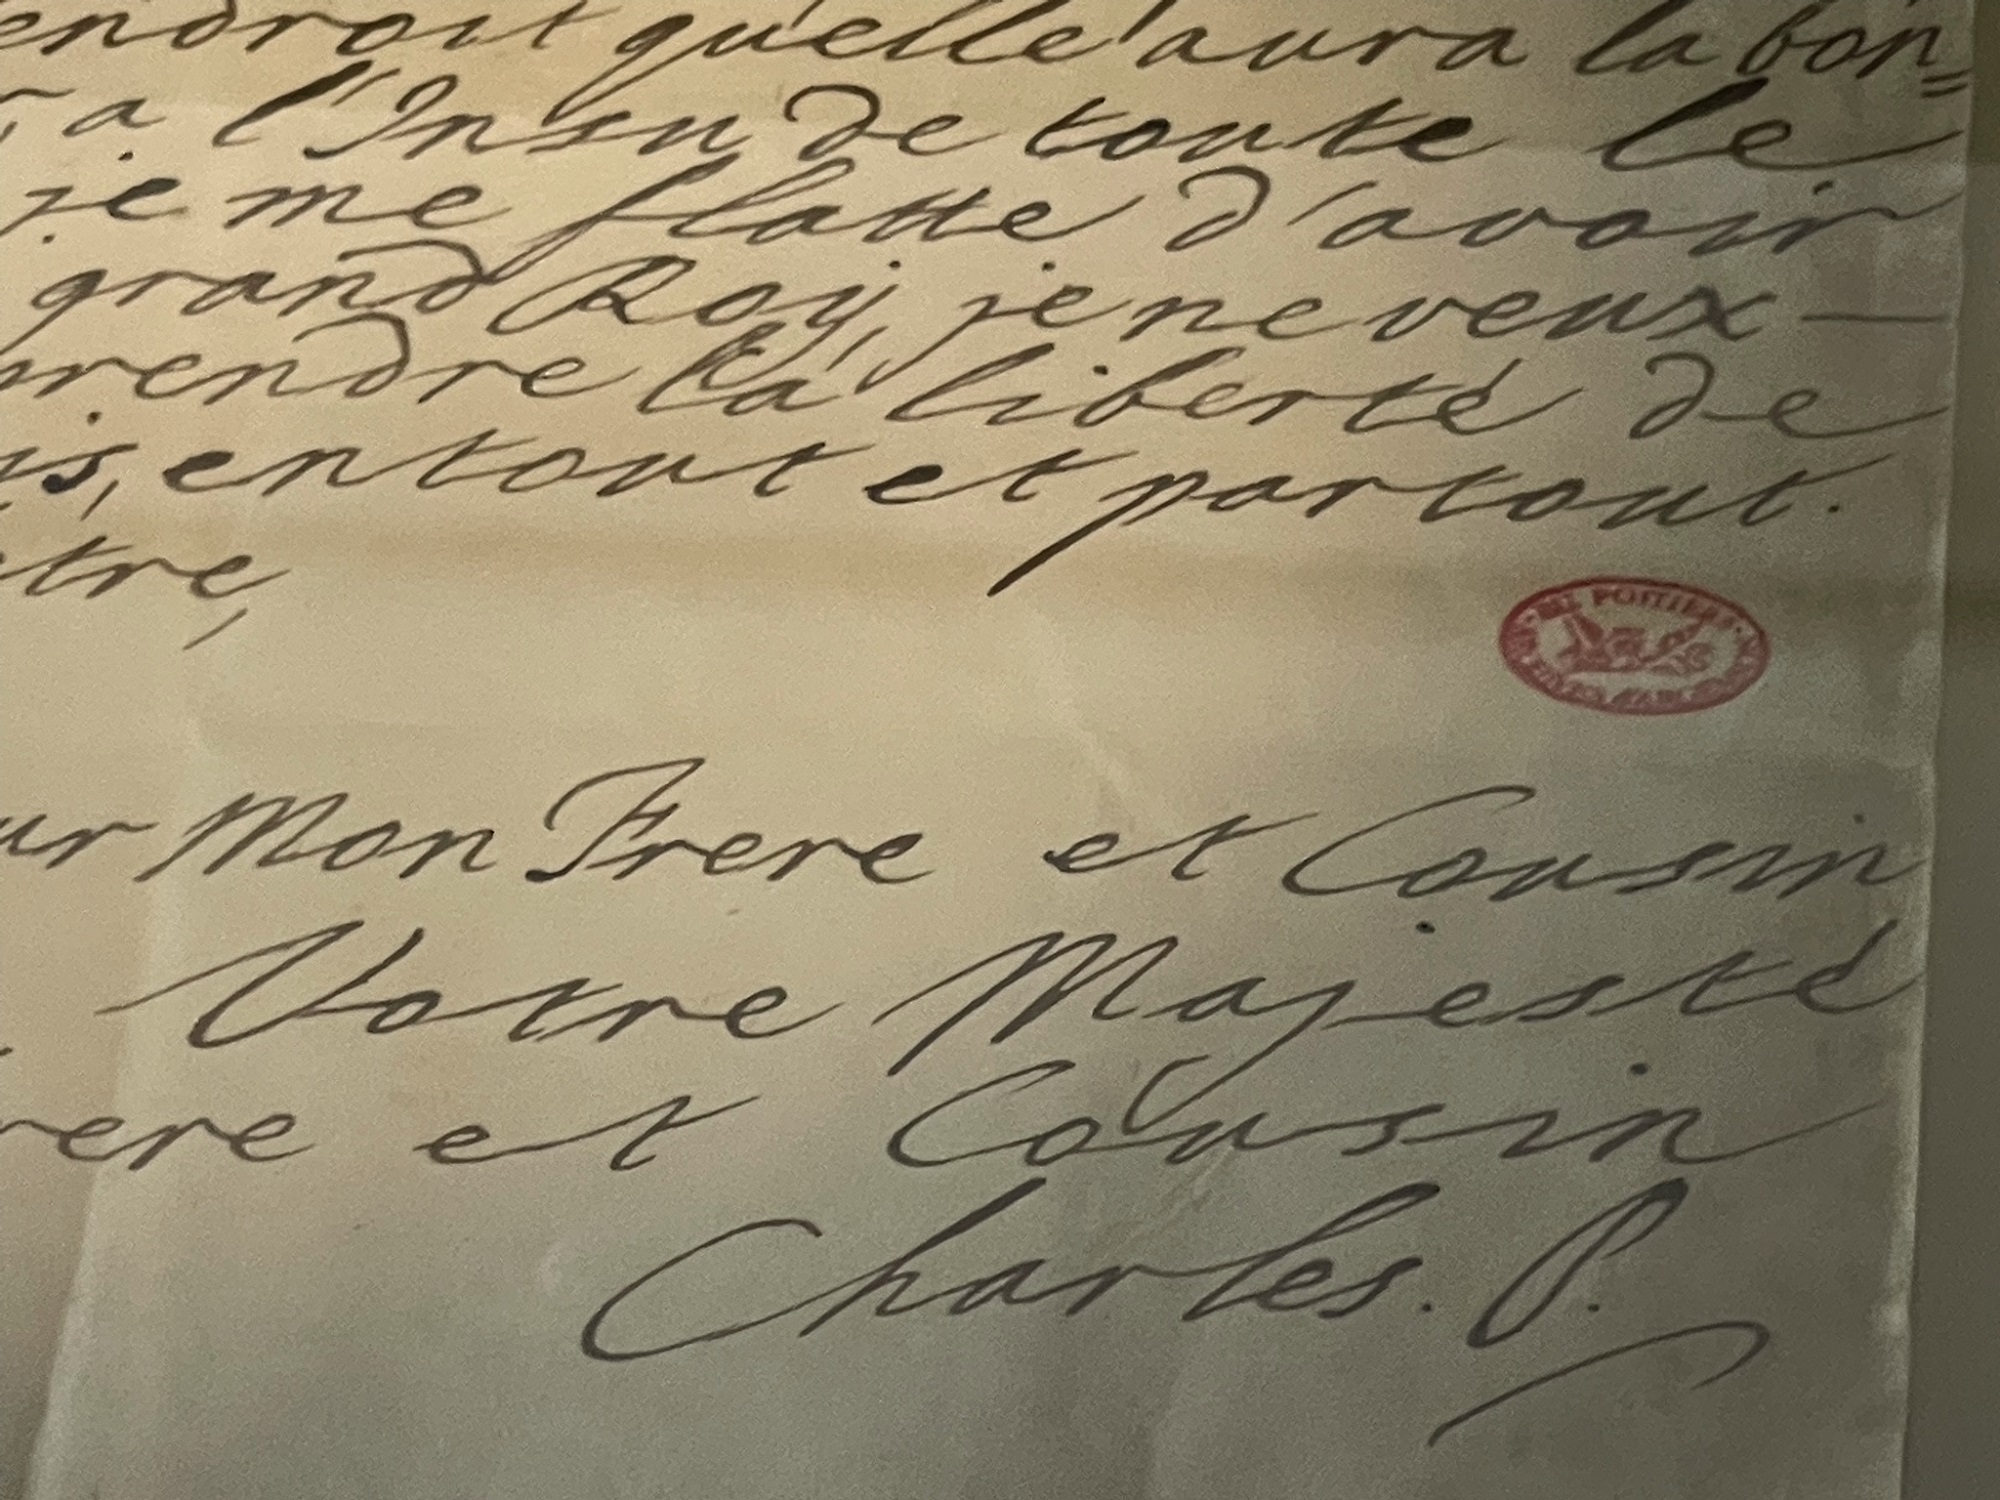 endroit qu'elle aura la bon=
, a l'Insu de toute le
je me flatte d'avoir
grand Roy, je ne veux —
prendre la liberté de
is, en tout et partout.
etre,
DE POITIERS
ur Mon Frere et Cousin
Votre Majesté
rere et Cousin
Charles. P.